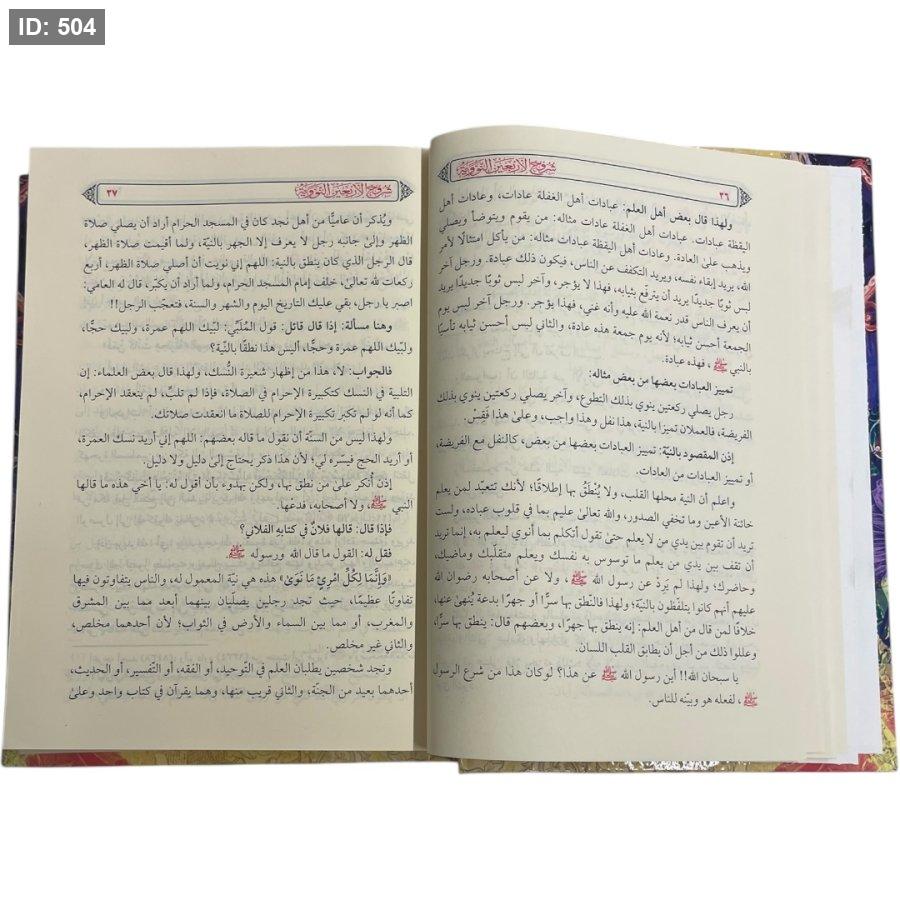 ID: 504
شروح الأربعين النووية
٢٦
ولهذا قال بعض أهل العلم: عبادات أهل الغفلة عادات، وعادات أهل
اليقظة عبادات. عبادات أهل الغفلة عادات مثاله: من يقوم ويتوضأ ويصلي
ويذهب على العادة. وعادات أهل اليقظة عبادات مثاله: من يأكل امتثالًا لأمر
الله، يريد إبقاء نفسه، ويريد التكفف عن الناس، فيكون ذلك عبادة. ورجل آخر
لبس ثوبًا جديدًا يريد أن يترفّع بثيابه، فهذا لا يؤجر، وآخر لبس ثوبًا جديدًا يريد
أن يعرف الناس قدر نعمة الله عليه وأنه غني، فهذا يؤجر. ورجل آخر لبس يوم
الجمعة أحسن ثيابه؛ لأنه يوم جمعة فهذه عادة، والثاني لبس أحسن ثيابه تأسيًا
بالنبي ﷺ، فهذه عبادة.
تمييز العبادات بعضها من بعض مثاله:
رجل يصلي ركعتين ينوي بذلك التطوع، وآخر يصلي ركعتين ينوي بذلك
الفريضة، فالعملان تميزا بالنية، هذا نفل وهذا واجب، وعلى هذا فَقِسْ.
إذن المقصود بالنيّة: تمييز العبادات بعضها من بعض، كالنفل مع الفريضة،
أو تمييز العبادات من العادات.
واعلم أن النية محلها القلب، ولا يُنْطَقُ بها إطلاقًا؛ لأنك تتعبّد لمن يعلم
خائنة الأعين وما تخفي الصدور، والله تعالى عليم بما في قلوب عباده، ولست
تريد أن تقوم بين يدي من لا يعلم حتى تقول أتكلم بما أنوي ليعلم به، إنما تريد
أن تقف بين يدي من يعلم ما توسوس به نفسك ويعلم متقلّبك وماضيك،
وحاضرك؛ ولهذا لم يَرِدْ عن رسول الله ﷺ، ولا عن أصحابه رضوان الله
عليهم أنهم كانوا يتلفّظون بالنيّة؛ ولهذا فالنّطق بها سرًّا أو جهرًا بدعة يُنهى عنها،
خلافًا لمن قال من أهل العلم: إنه ينطق بها جهرًا، وبعضهم قال: ينطق بها سرًّا،
وعللوا ذلك من أجل أن يطابق القلب اللسان.
يا سبحان الله!! أين رسول الله ﷺ عن هذا؟ لو كان هذا من شرع الرسول
ﷺ، لفعله هو وبيّنه للناس.
شروح الأربعين النووية
٢٧
ويُذكر أن عاميًّا من أهل نجد كان في المسجد الحرام أراد أن يصلي صلاة
الظهر وإلى جانبه رجل لا يعرف إلا الجهر بالنيّة، ولما أقيمت صلاة الظهر،
قال الرجل الذي كان ينطق بالنية: اللهم إني نويت أن أصلي صلاة الظهر، أربع
ركعات لله تعالى، خلف إمام المسجد الحرام، ولما أراد أن يكبّر، قال له العامي:
اصبر يا رجل، بقي عليك التاريخ اليوم والشهر والسنة، فتعجّب الرجل!!
وهنا مسألة: إذا قال قائل: قول المُلَبِّي: لبّيك اللهم عمرة، ولبيك حجًّا،
ولبّيك اللهم عمرة وحجًّا، أليس هذا نطقًا بالنّية؟
فالجواب: لا، هذا من إظهار شعيرة النُّسك، ولهذا قال بعض العلماء: إن
التلبية في النسك كتكبيرة الإحرام في الصلاة، فإذا لم تلبِّ، لم ينعقد الإحرام،
كما أنه لو لم تكبر تكبيرة الإحرام للصلاة ما انعقدت صلاتك.
ولهذا ليس من السنّة أن نقول ما قاله بعضهم: اللهم إني أريد نسك العمرة،
أو أريد الحج فيسّره لي؛ لأن هذا ذكر يحتاج إلى دليل ولا دليل.
إذن أُنكر على من نطق بها، ولكن بهدوء بأن أقول له: يا أخي هذه ما قالها
النبي ﷺ، ولا أصحابه، فدعها.
فإذا قال: قالها فلانٌ في كتابه الفلاني؟
فقل له: القول ما قال الله ورسوله ﷺ.
«وَإِنَّمَا لِكُلِّ امْرِئٍ مَا نَوَىٰ» هذه هي نيّة المعمول له، والناس يتفاوتون فيها
تفاوتًا عظيمًا، حيث تجد رجلين يصلّيان بينهما أبعد مما بين المشرق
والمغرب، أو مما بين السماء والأرض في الثواب؛ لأن أحدهما مخلص،
والثاني غير مخلص.
وتجد شخصين يطلبان العلم في التّوحيد، أو الفقه، أو التّفسير، أو الحديث،
أحدهما بعيد من الجنّة، والثاني قريب منها، وهما يقرآن في كتاب واحد وعلى